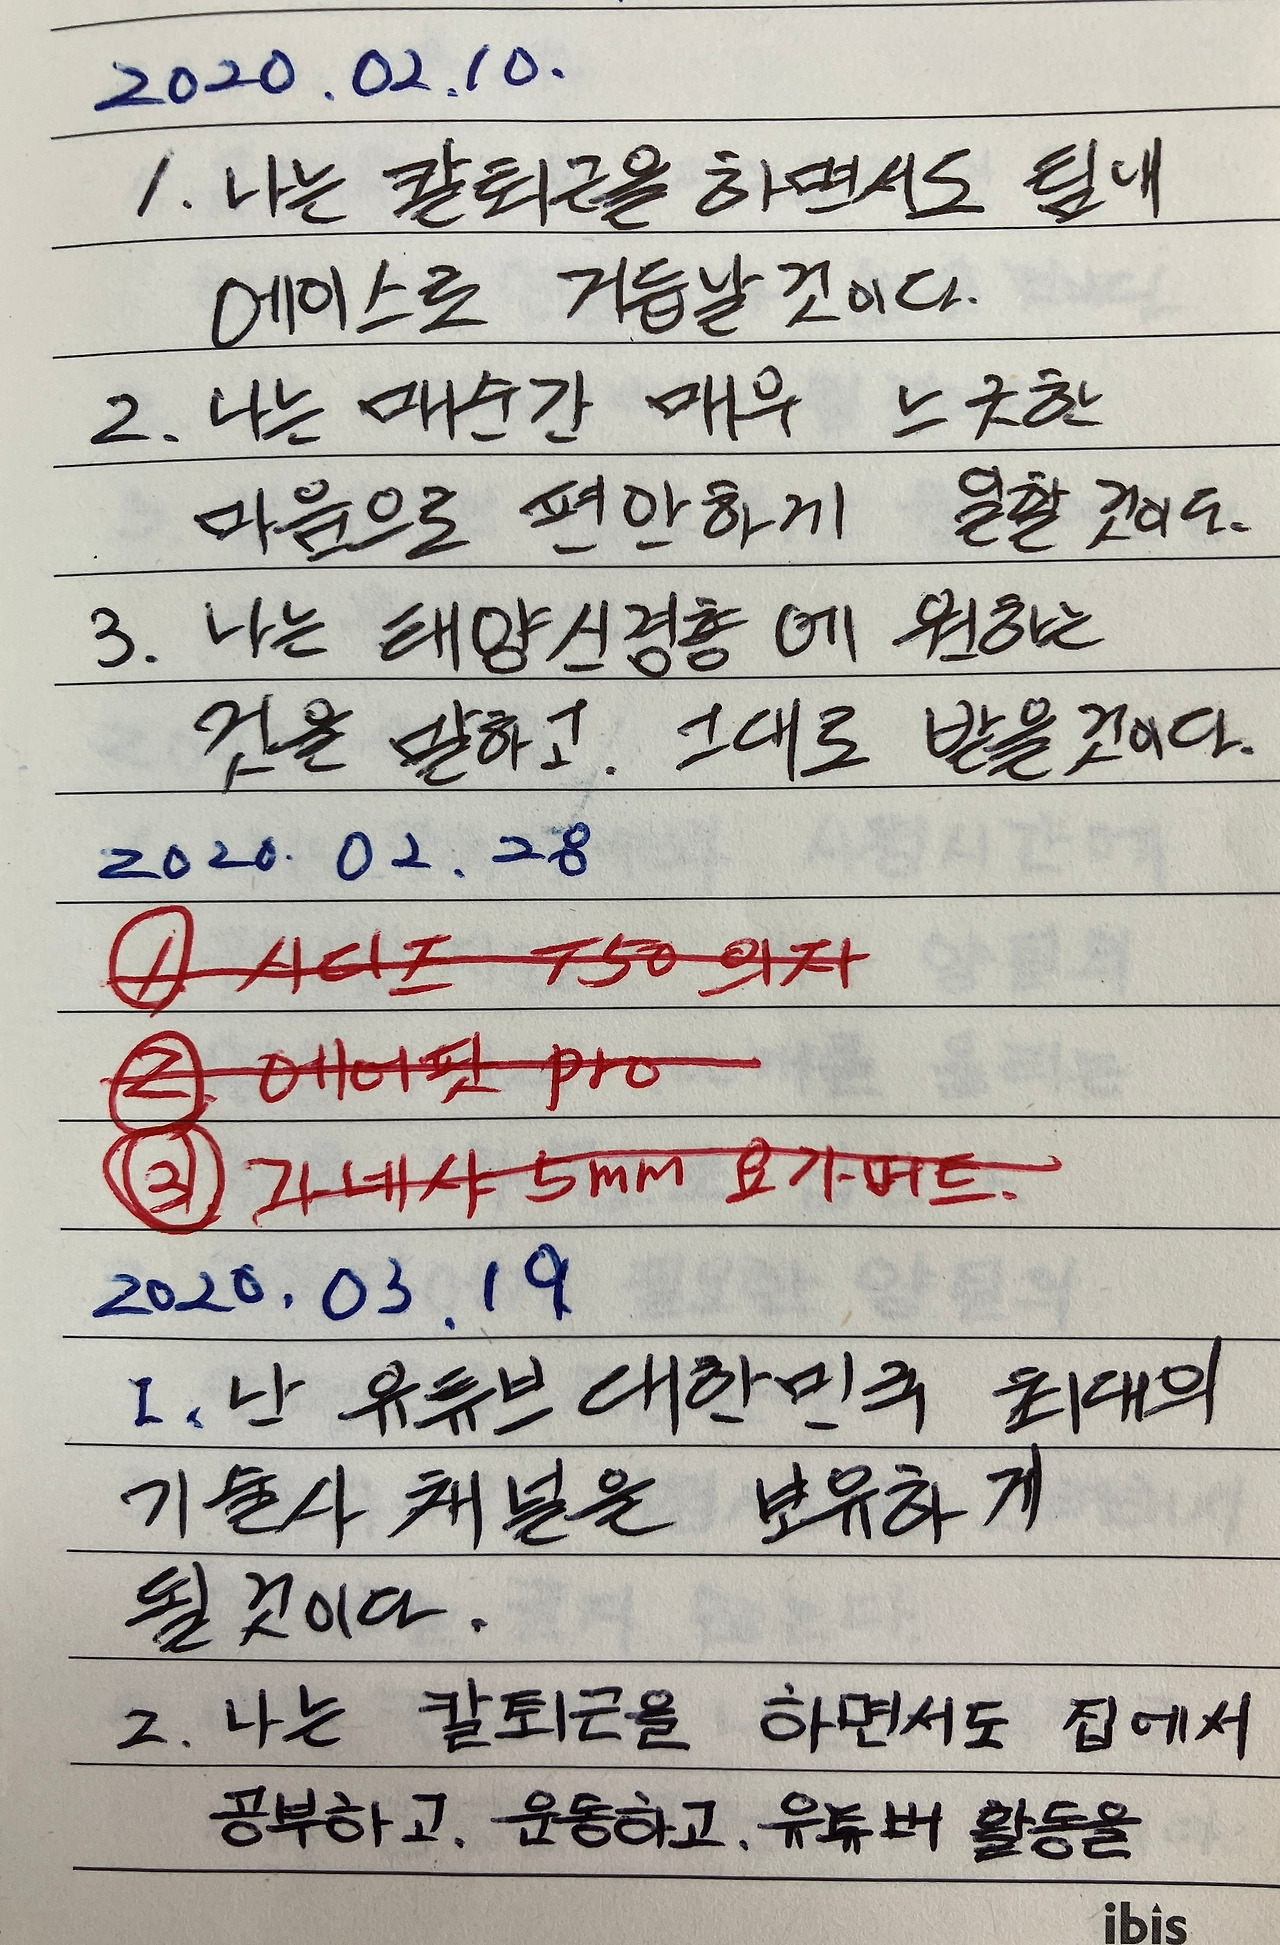 2020.02.10.
1. 나는 칼퇴근을 하면서도 팀내
에이스로 거듭날 것이다.
2. 나는 매순간 매우 느긋한
마음으로 편안하게 일할 것이다.
3. 나는 태양신경총에 원하는
것을 말하고, 그대로 받을 것이다.
2020. 02. 28
① 시디즈 T50 의자
② 에어팟 pro
③ 가네샤 5mm 요가매트.
2020. 03. 19
1. 난 유튜브 대한민국 최대의
기술사 채널을 보유하게
될 것이다.
2. 나는 칼퇴근을 하면서도 집에서
공부하고, 운동하고, 유튜버 활동을
ibis